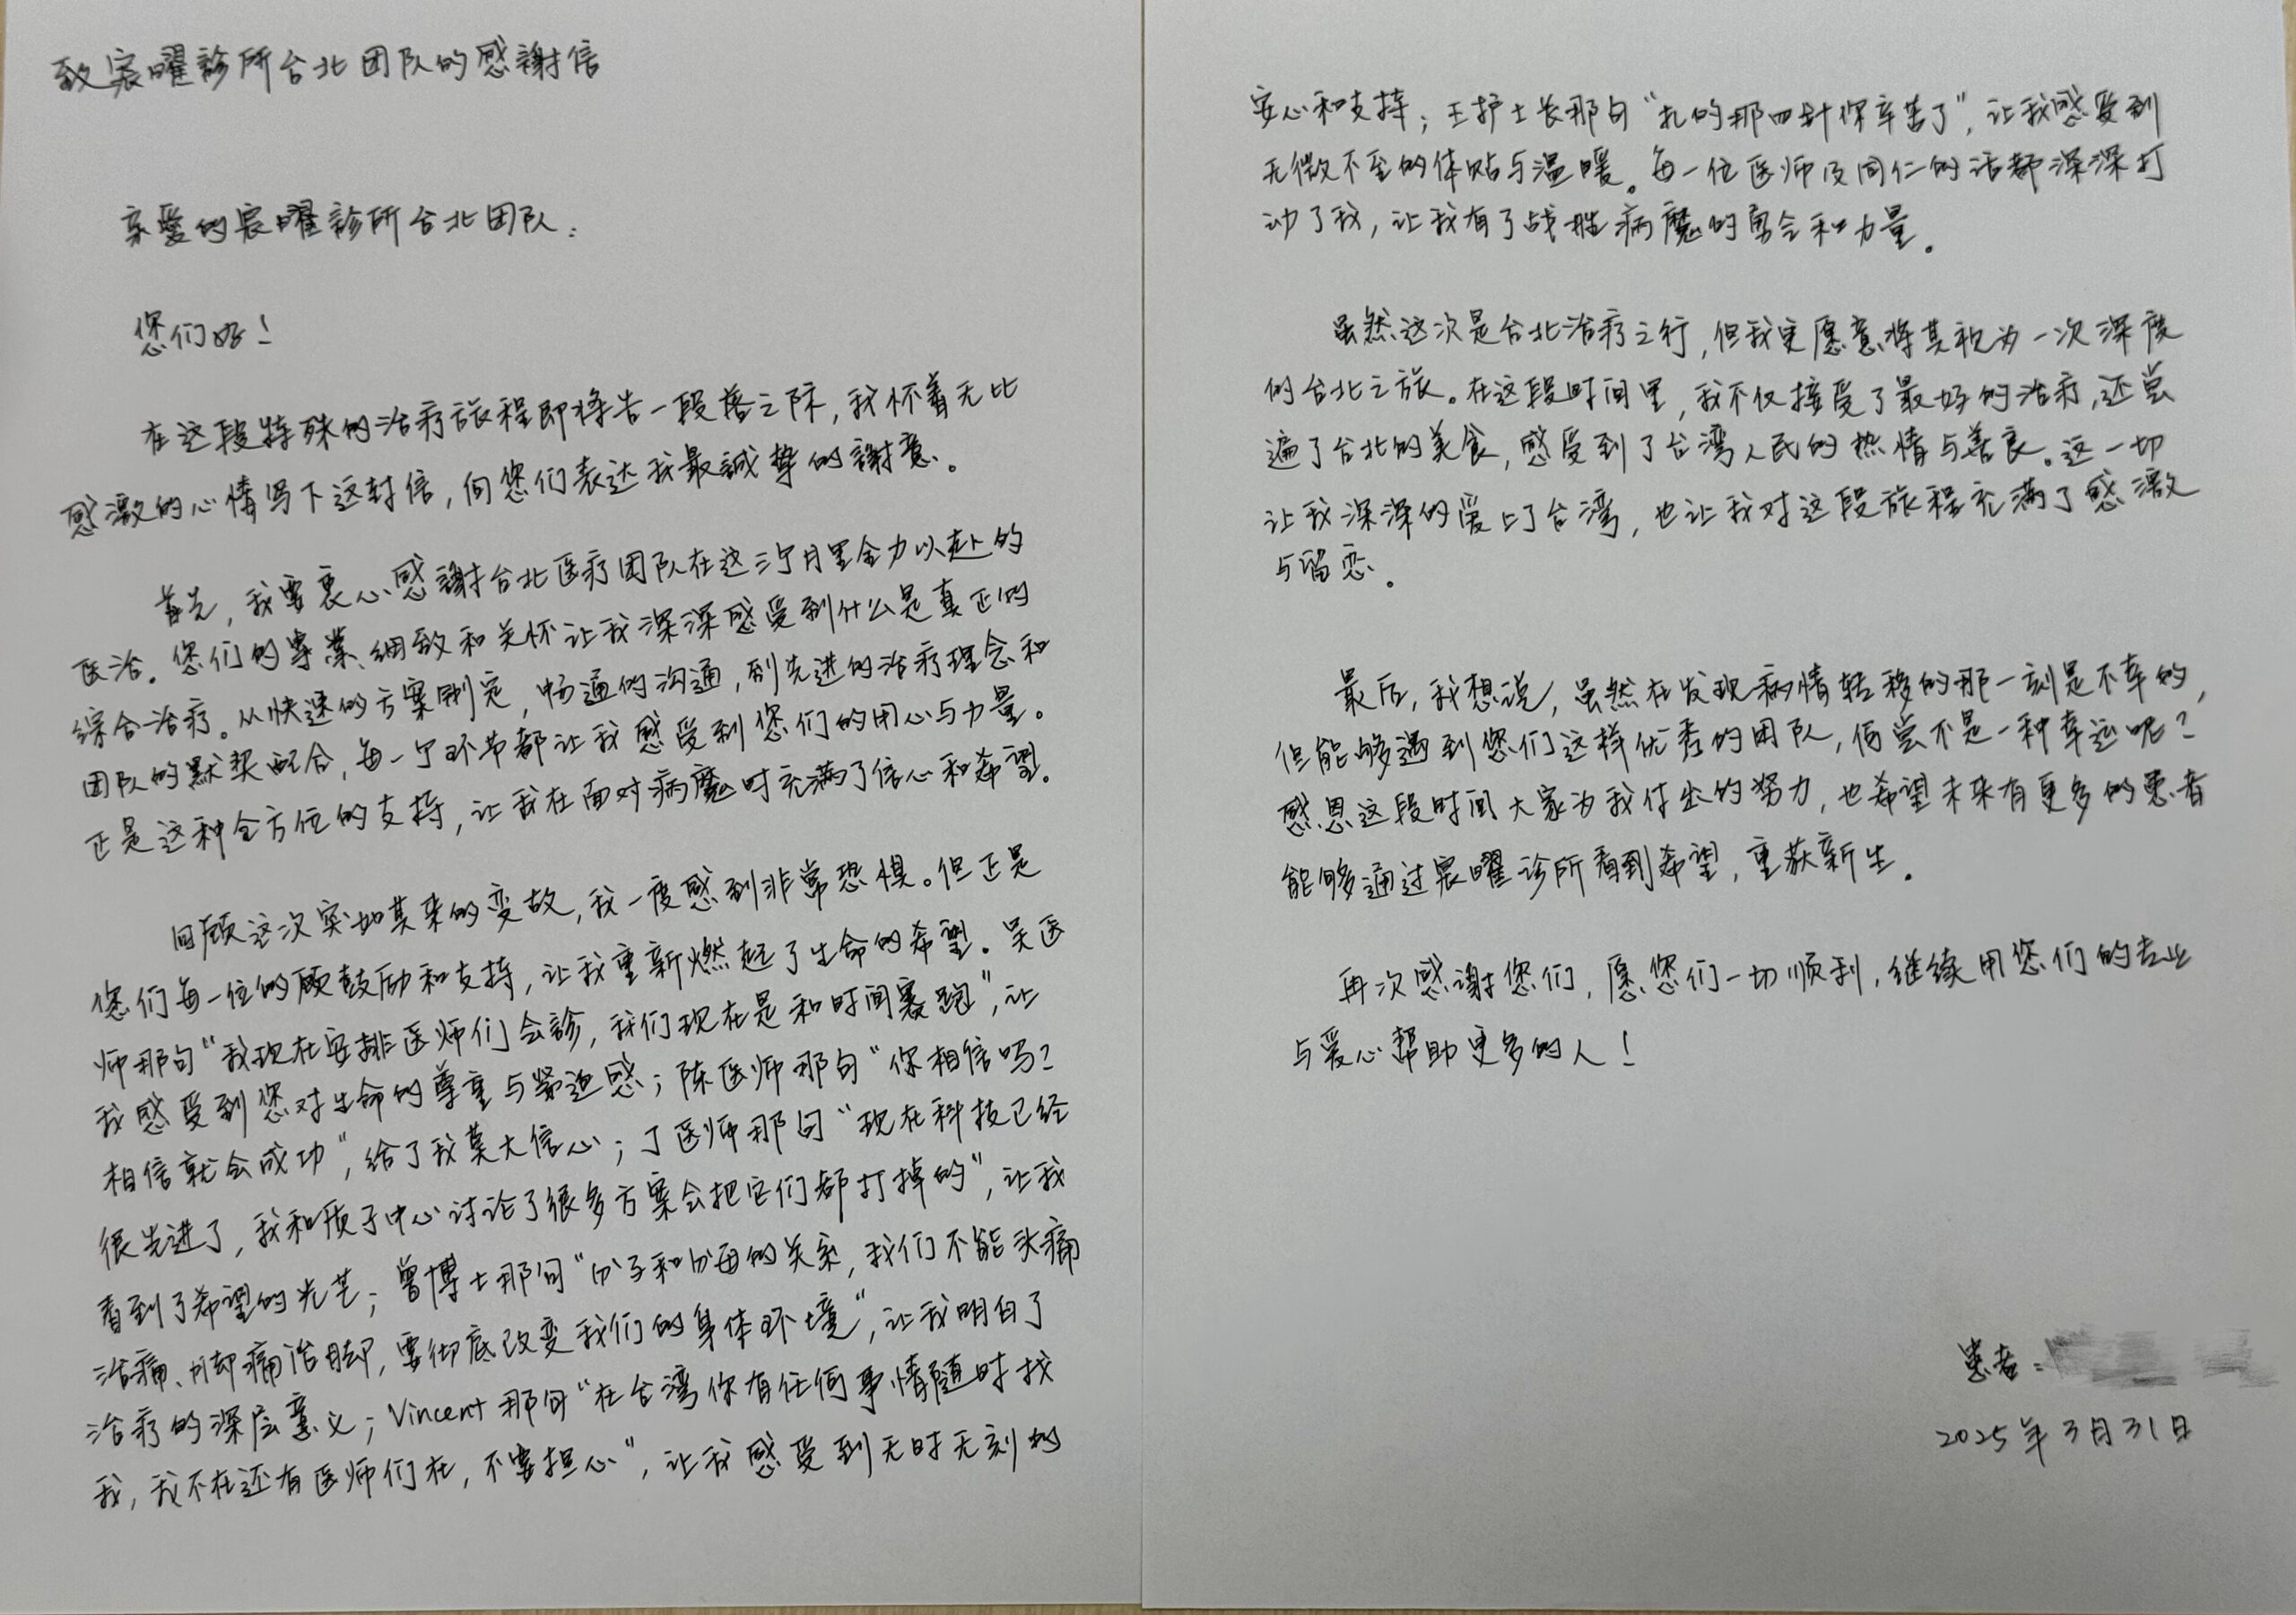 致宸曜診所台北团队的感謝信
亲爱的宸曜診所台北团队：
您们好！
在这段特殊的治疗旅程即将告一段落之际，我怀着无比
感激的心情写下这封信，向您们表达我最誠挚的謝意。
首先，我要衷心感謝台北医疗团队在这三个月里全力以赴的
医治。您们的専業、细致和关怀让我深深感受到什么是真正的
综合治疗。从快速的方案制定，畅通的沟通，到先进的治疗理念和
团队的默契配合，每一个环节都让我感受到您们的用心与力量。
正是这种全方位的支持，让我在面对病魔时充满了信心和希望。
回顾这次突如其来的变故，我一度感到非常恐惧。但正是
您们每一位的鼓励和支持，让我重新燃起了生命的希望。吴医
师那句“我现在安排医师们会診，我们现在是和时间赛跑”，让
我感受到您对生命的尊重与紧迫感；陈医师那句“你相信吗？
相信就会成功”，给了我莫大信心；丁医师那句“现在科技已经
很先进了，我和质子中心讨论了很多方案会把它们都打掉的”，让我
看到了希望的光芒；曾博士那句“分子和分母的关系，我们不能头痛
治痛、脚痛治脚，要彻底改变我们的身体环境”，让我明白了
治疗的深层意义；Vincent那句“在台湾你有任何事情随时找
我，我不在还有医师们在，不要担心”，让我感受到无时无刻的
安心和支持；王护士长那句“扎的那四针你辛苦了”，让我感受到
无微不至的体贴与温暖。每一位医师及同仁的话都深深打
动了我，让我有了战胜病魔的勇气和力量。
虽然这次是台北治疗之行，但我更愿意将其视为一次深度
的台北之旅。在这段时间里，我不仅接受了最好的治疗，还尝
遍了台北的美食，感受到了台湾人民的热情与善良。这一切
让我深深的爱上了台湾，也让我对这段旅程充满了感激
与留恋。
最后，我想说，虽然在发现病情转移的那一刻是不幸的，
但能够遇到您们这样优秀的团队，何尝不是一种幸运呢？
感恩这段时间大家为我付出的努力，也希望未来有更多的患者
能够通过宸曜诊所看到希望，重获新生。
再次感谢您们，愿您们一切顺利，继续用您们的专业
与爱心帮助更多的人！
患者：
2025年3月31日